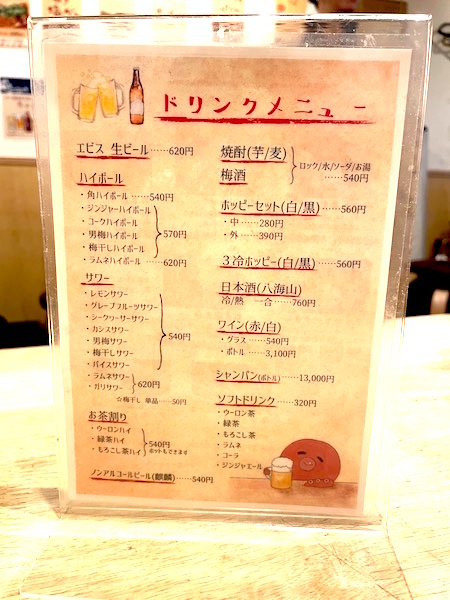 ドリンクメニュー
エビス 生ビール……620円
ハイボール
・角ハイボール ……540円
・ジンジャーハイボール
・コークハイボール
・男梅ハイボール
・梅干しハイボール
570円
・ラムネハイボール ……620円
サワー
・レモンサワー
・グレープフルーツサワー
・シークヮーサーサワー
・カシスサワー
・男梅サワー
・梅干しサワー
・バイスサワー
540円
・ラムネサワー
・ガリサワー
620円
☆梅干し 単品……50円
お茶割り
・ウーロンハイ
・緑茶ハイ
・もろこし茶ハイ
540円
ホットもできます
ノンアルコールビール(麒麟)……540円
焼酎(芋/麦)
梅酒
ロック/水/ソーダ/お湯
……540円
ホッピーセット(白/黒)……560円
・中 ……280円
・外 ……390円
3冷ホッピー(白/黒)……560円
日本酒(八海山)
冷/熱 一合 ……760円
ワイン(赤/白)
・グラス ……540円
・ボトル ……3,100円
シャンパン(ボトル) ……13,000円
ソフトドリンク……320円
・ウーロン茶
・緑茶
・もろこし茶
・ラムネ
・コーラ
・ジンジャエール